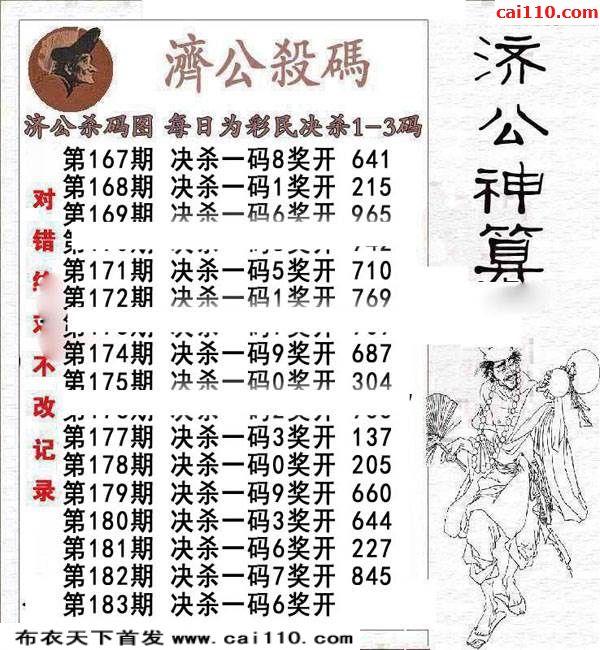 cai110.com
濟公殺碼
济公神算
济公杀码图 每日为彩民决杀1-3码
第167期 决杀一码8奖开 641
第168期 决杀一码1奖开 215
第169期 决杀一码6奖开 965
第171期 决杀一码5奖开 710
第172期 决杀一码1奖开 769
第174期 决杀一码9奖开 687
第175期 决杀一码0奖开 304
第177期 决杀一码3奖开 137
第178期 决杀一码0奖开 205
第179期 决杀一码9奖开 660
第180期 决杀一码3奖开 644
第181期 决杀一码6奖开 227
第182期 决杀一码7奖开 845
第183期 决杀一码6奖开
对错 不改记录
布衣天下首发 www.cai110.com